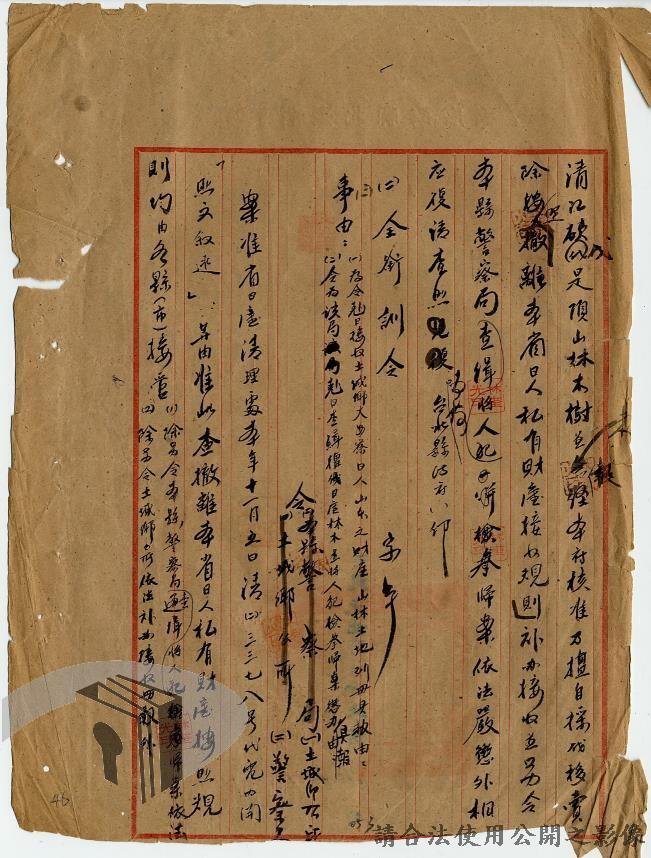 清江砍伐足頂山林木樹並無經本府核准乃擅自採伐移賣
除按照撤離本省日人私有財產接收規則補辦接收並另令
本縣警察局查緝將人犯予併檢奉歸案依法嚴懲外相
應復請查照 台北縣政府 印
(二)全銜訓令 字
事由：(一)為令剋日接收土城鄉大安寮日人山本之財產山林土地列冊具報由
(二)令為該局剋日查緝擅伐日產林木並將人犯檢奉歸案懲辦具報由
令本縣警察局
土城鄉公所
(一)土城鄉公所
(二)警察
案准省日產清理處本年十一月五日清(二)三三七八號代電內開
「照文敘述」等由准此查撤離本省日人私有財產接照規
則均由各縣(市)接管
(一)除另令本縣警察局查緝將人犯歸案依法
(二)除另令土城鄉公所依法補辦接收冊報外
46
請合法使用公開之影像